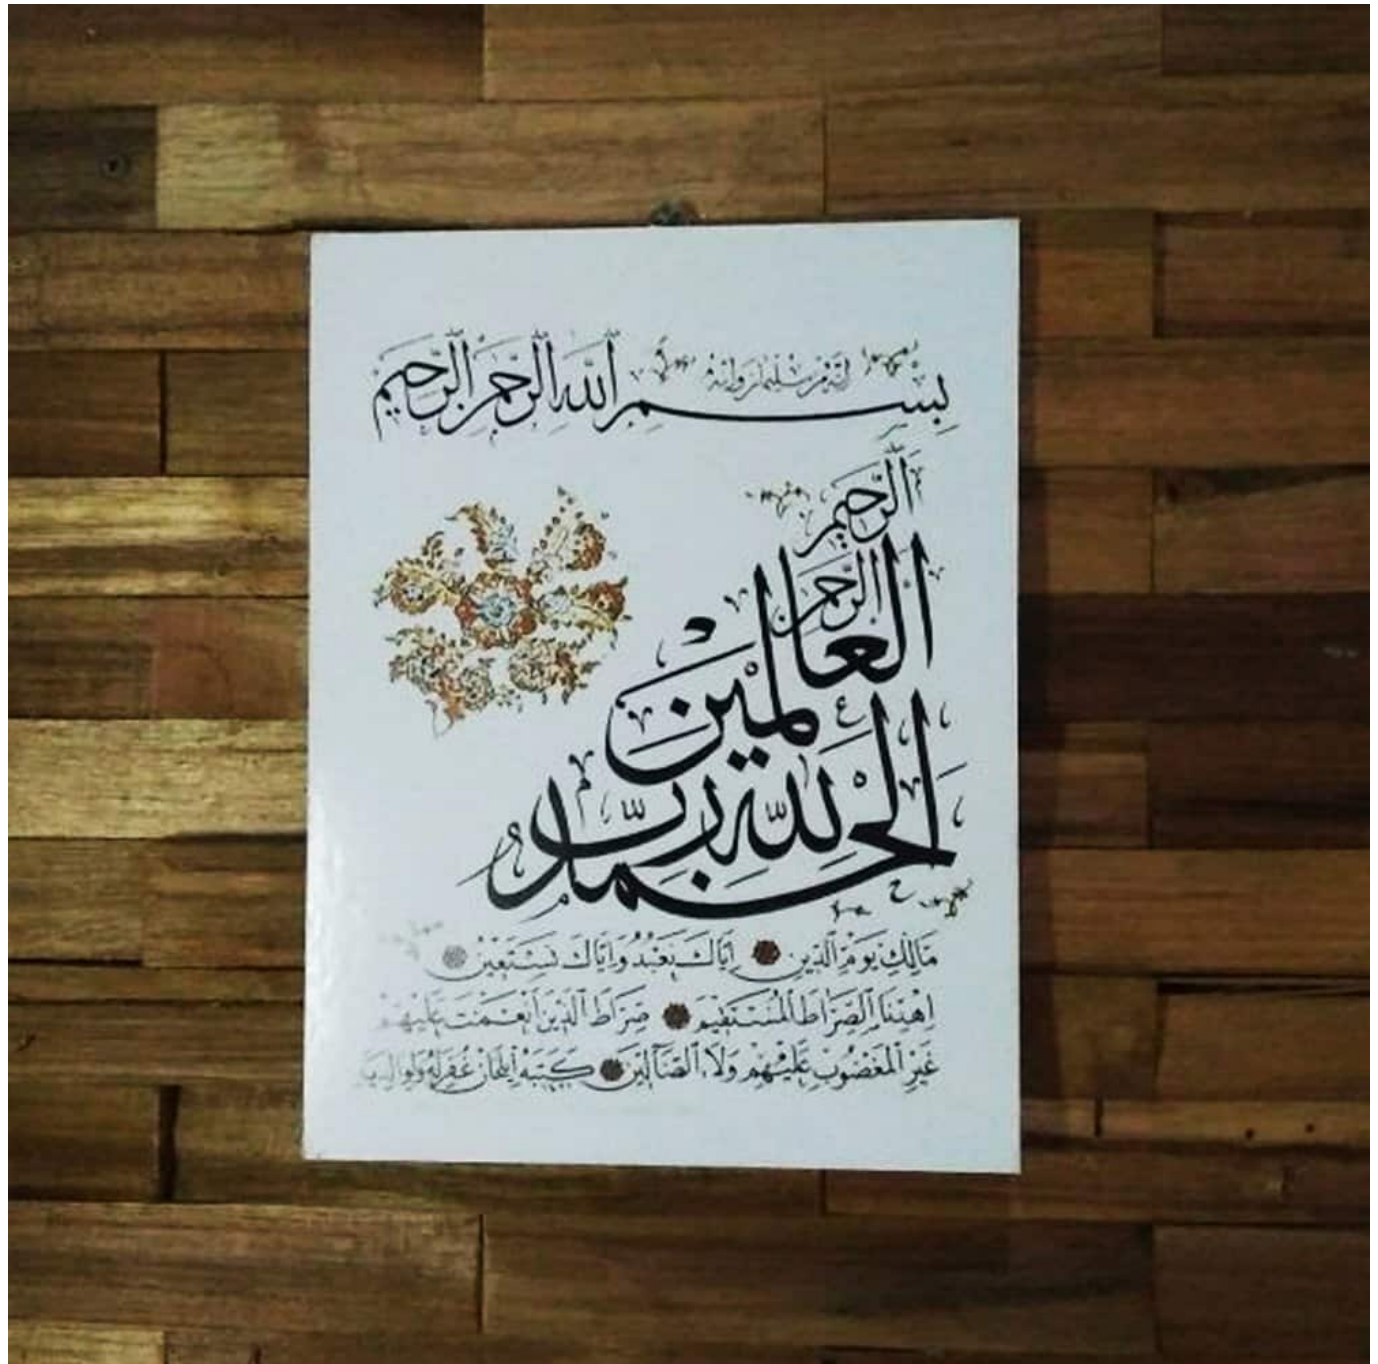 إنه من سليمان وإنه
بسم الله الرحمن الرحيم
الحمد لله رب
العالمين
الرحمن
الرحيم
مَالِكِ يَوْمِ الدِّينِ اِيَّاكَ نَعْبُدُ وَاِيَّاكَ نَسْتَعِينُ
اِهْدِنَا الصِّرَاطَ الْمُسْتَقِيمَ صِرَاطَ الَّذِينَ اَنْعَمْتَ عَلَيْهِمْ
غَيْرِ الْمَغْضُوبِ عَلَيْهِمْ وَلَا الضَّالِّينَ كَتَبَهُ غُفِرَ لَهُ